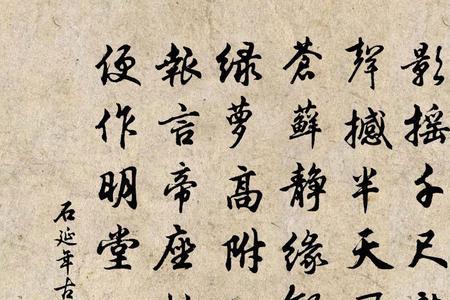 影摇千尺
聲撼半天
蒼蘚静缘
绿萝高附
報言帝座
便作明堂
石延年古